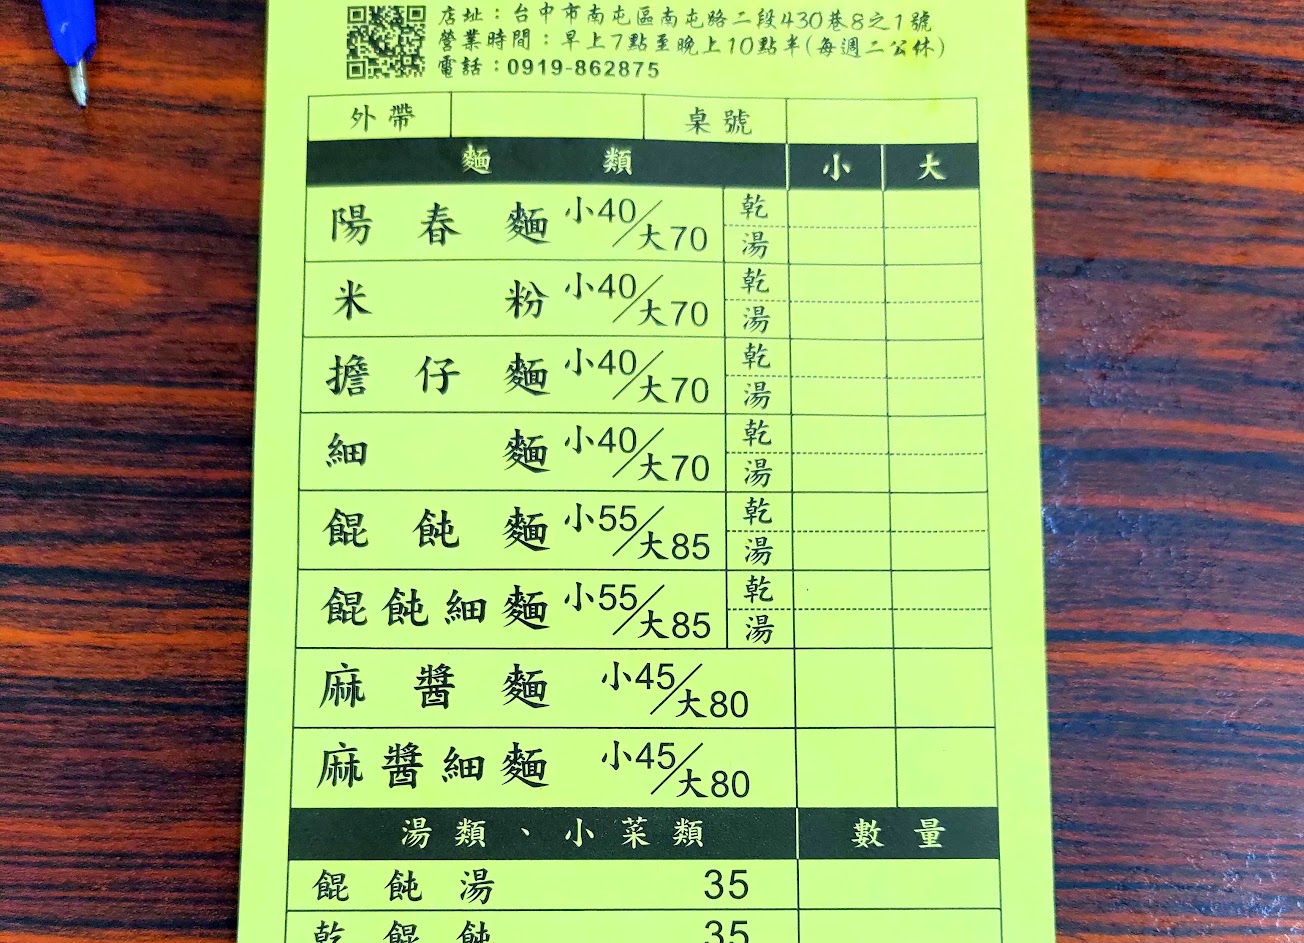 店址：台中市南屯區南屯路二段430巷8之1號
營業時間：早上7點至晚上10點半(每週二公休)
電話：0919-862875
外帶 桌號
麵類 小 大
陽春麵 小40/大70 乾 湯
米粉 小40/大70 乾 湯
擔仔麵 小40/大70 乾 湯
細麵 小40/大70 乾 湯
餛飩麵 小55/大85 乾 湯
餛飩細麵 小55/大85 乾 湯
麻醬麵 小45/大80
麻醬細麵 小45/大80
湯類、小菜類 數量
餛飩湯 35
乾餛飩 35